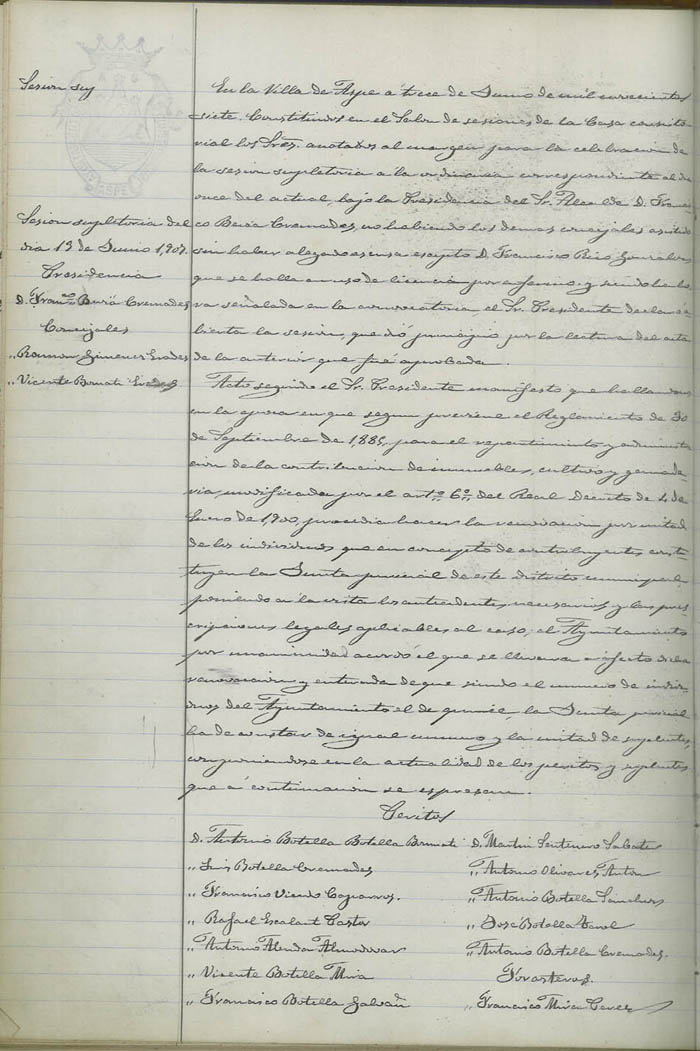 Sesion suy
Sesion supletoria del
dia 13 de Junio 1,907.
Presidencia
D. Franco Berá Cremades
Concejales
,, Ramon Gimenez Prades
,, Vicente Bernati
En la Villa de Aspe á trece de Junio de mil novecientos
siete, Constituidos en el Salon de sesiones de la Casa consisto-
rial los Sres. anotados al margen para la celebracion de
la sesion supletoria a la ordinaria correspondiente al dia
once del actual, bajo la Presidencia del Sr. Alcalde D. Francis-
co Berá Cremades, no habiendo los demas concejales asistido
sin haber alegado escusa escepto D. Francisco Rico
que se halla en uso de licencia por enfermo; y siendo la ho-
ra señalada en la convocatoria el Sr. Presidente declara a-
bierta la sesion, que dió principio por la lectura del acta
de la anterior que fué aprobada.
Acto seguido el Sr. Presidente manifestó que hallandose
en la epoca en que segun previene el Reglamento de 30
de Septiembre de 1,885, para el repartimiento y administra
cion de la contribucion de inmuebles, cultivo y ganade-
ria, modificada por el arto. 6o. del Real Decreto de 4 de
Enero de 1,900, procedia hacer la renovacion por mitad
de los individuos que en concepto de contribuyentes cons-
tuyen la Junta pericial de este distrito municipal,
poniendo a la vista los antecedentes necesarios y las pres
cripciones legales aplicables al caso, el Ayuntamiento
por unanimidad acordó el que se llevara a efecto dicha
renovacion y enterada de que siendo el numero de indivi-
duos del Ayuntamiento el de quince, la Junta pericial
ha de constar de igual numero y la mitad de suplentes,
componiendose en la actualidad de los peritos y suplentes
que á continuacion se espresan.
Peritos
D. Antonio Botella Botella Bernati D. Martin Sentenero Sabater
,, Luis Botella Cremades ,, Antonio Olivares Anton
,, Francisco Vicedo Caparros. ,, Antonio Botella Sanchez
,, Rafael Escalant Pastor ,, José Botella
,, Antonio Almodovar ,, Antonio Botella Cremades.
,, Vicente Botella Mira Forasteros.
,, Francisco Botella Galvañ ,, Francisco Mira Perez